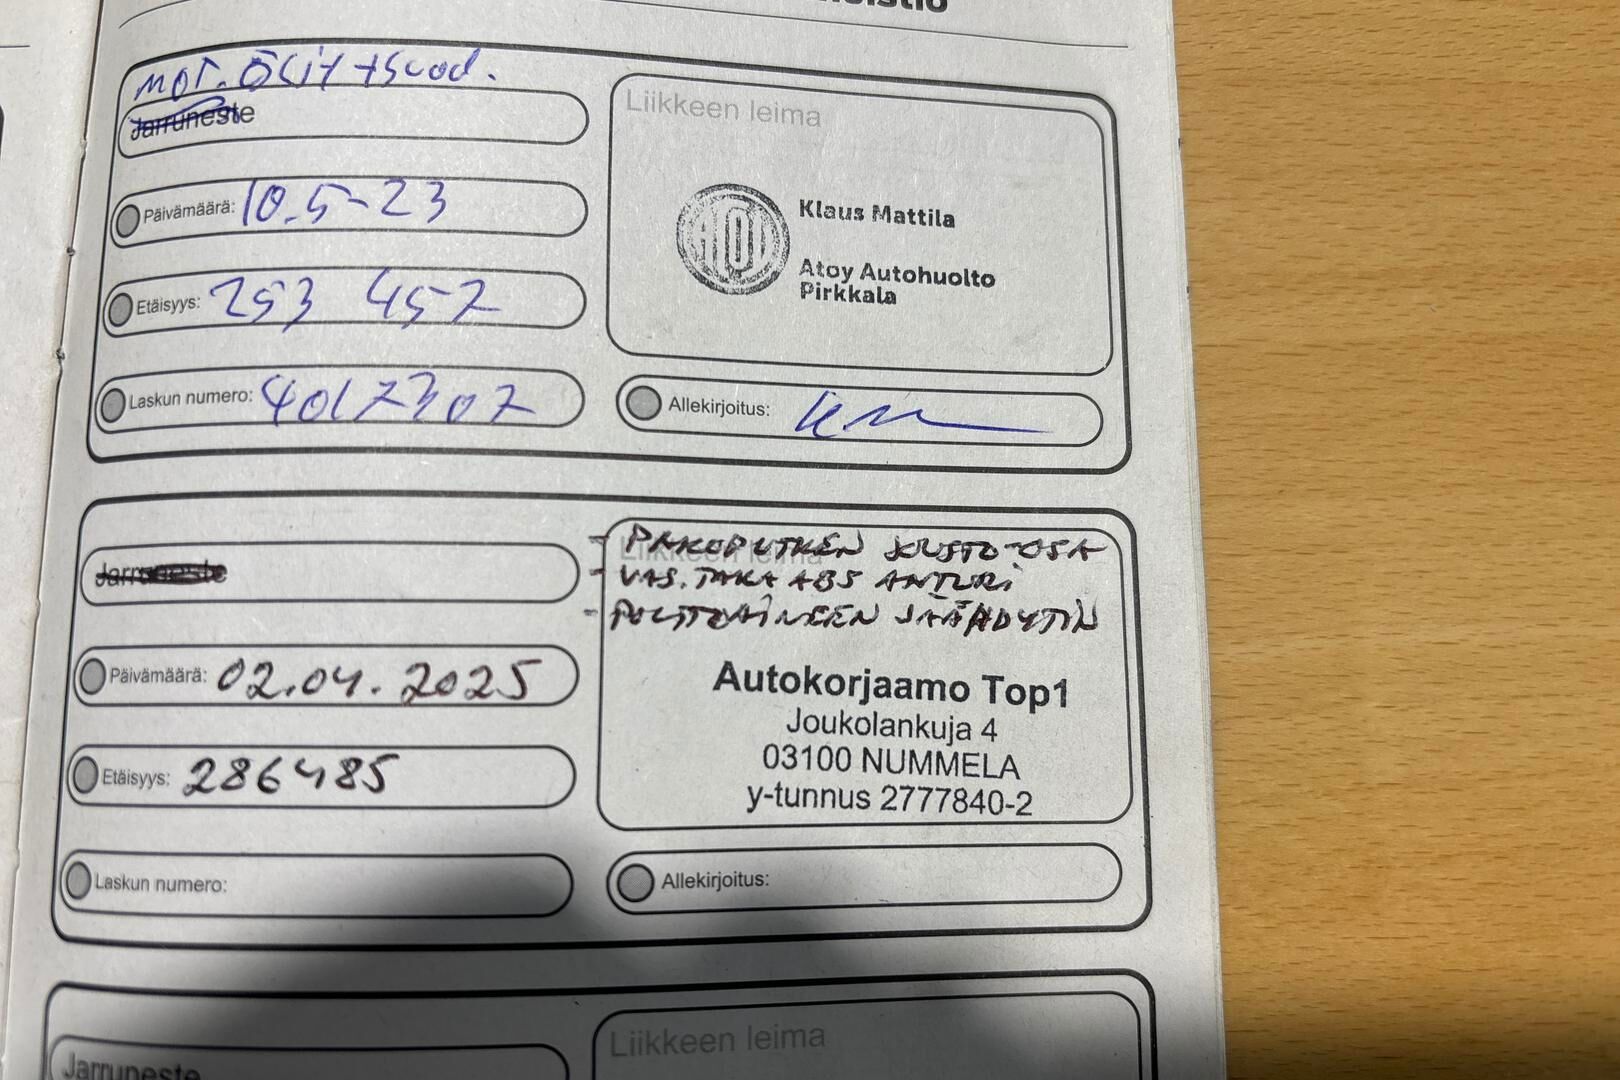 mot. öljy + suod.
Jarruneste
Liikkeen leima
Päivämäärä: 10.5-23
Klaus Mattila
Atoy Autohuolto
Pirkkala
Etäisyys: 253 457
Laskun numero: 4017307
Allekirjoitus:
- PAKOPUTKEN JOUSTO-OSA
- VAS. TAKA ABS ANTURI
- POLTTOAINEEN JÄÄHDYTIN
Jarruneste
Liikkeen leima
Päivämäärä: 02.04.2025
Autokorjaamo Top1
Joukolankuja 4
03100 NUMMELA
y-tunnus 2777840-2
Etäisyys: 286485
Laskun numero:
Allekirjoitus:
Liikkeen leima
Jarruneste